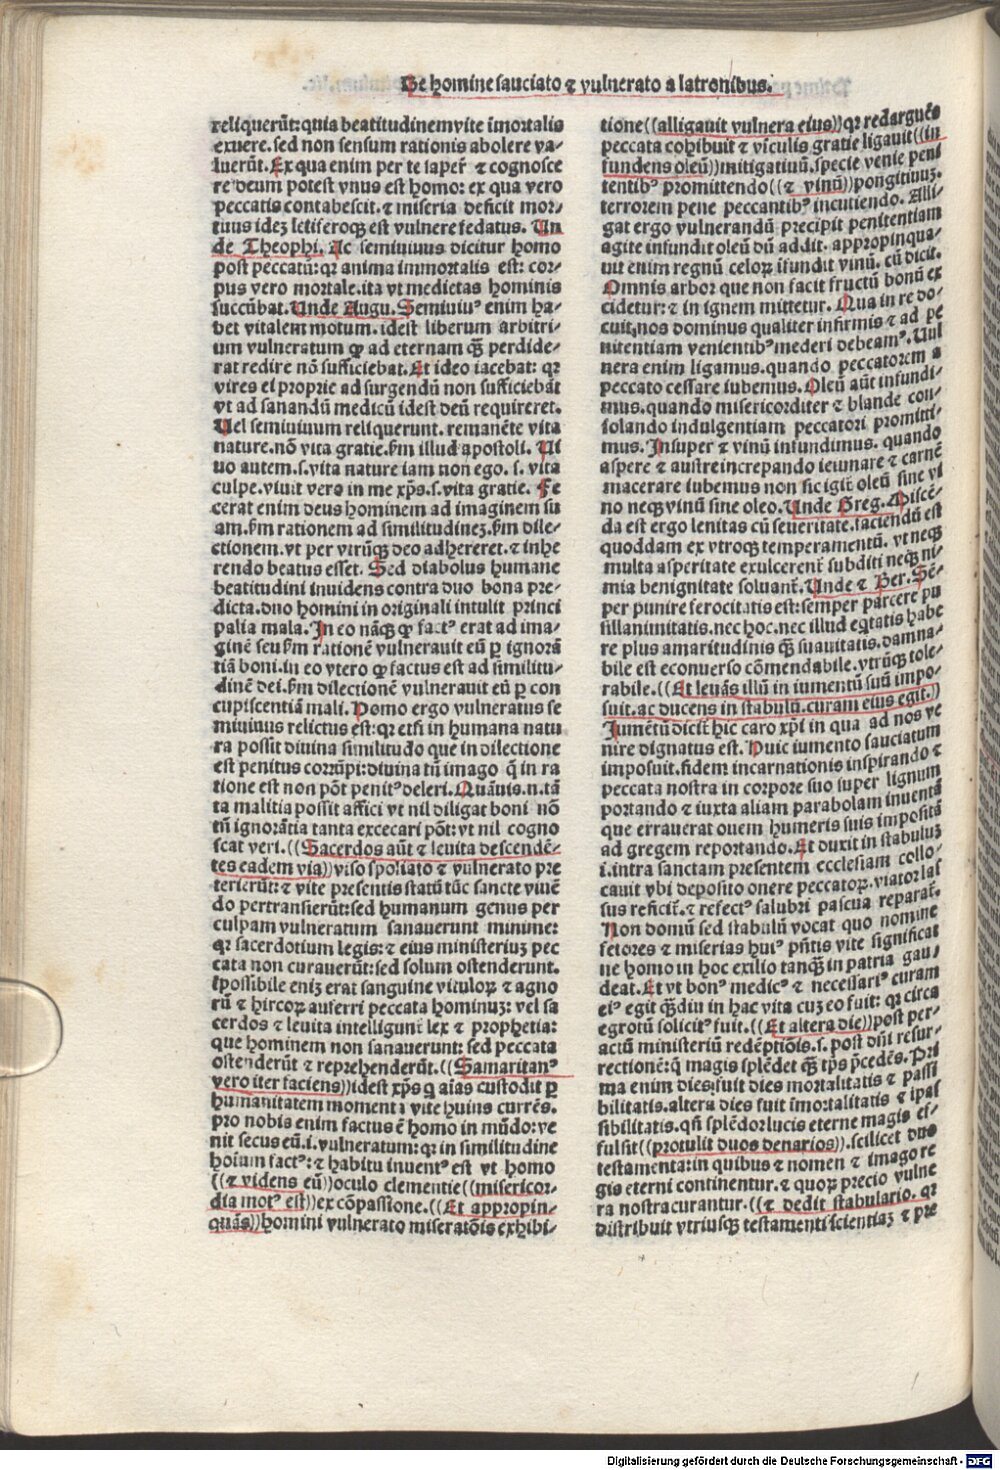 De homine sauciato ⁊ vulnerato a latronibus.
reliquerūt: quia beatitudinem vite īmortalis
exuere. sed non sensum rationis abolere va⸗
luerūt. Ex qua enim per te iaper̄ ⁊ cognosce
re deum potest vnus est homo: ex qua vero
peccatis contabescit. ⁊ miseria deficit mor⸗
tuus ideꝫ letiferoqꝫ est vulnere fedatus. Un
de Theophi. Ac semiuiuus dicitur homo
post peccatū: qꝛ anima immortalis est: cor⸗
pus vero mortale. ita vt medietas hominis
succūbat. Unde Augu. Semiuiuꝰ enim ha⸗
bet vitalem motum. idest liberum arbitri⸗
um vulneratum ꝙ ad eternam quā perdide⸗
rat redire nō sufficiebat. Et ideo iacebat: qꝛ
vires ei proprie ad surgendū non sufficiebāt
vt ad sanandū medicū idest deū requireret.
Uel semiuiuum reliquerunt. remanēte vita
nature. nō vita gratie. ẜm illud apostoli. Ui
uo autem. s. vita nature iam non ego. s. vita
culpe. viuit vero in me xp̄s. s. vita gratie. Fe
cerat enim deus hominem ad imaginem su
am. ẜm rationem ad similitudineꝫ. ẜm dile⸗
ctionem. vt per vtrūqꝫ deo adhereret. ⁊ inhe
rendo beatus esset. Sed diabolus humane
beatitudini inuidens contra duo bona pre⸗
dicta. duo homini in originali intulit princi
palia mala. In eo nāqꝫ ꝙ factꝰ erat ad ima⸗
ginē seu ẜm rationē vulnerauit eū ꝑ ignorā
tiā boni. in eo vtero ꝙ factus est ad similitu⸗
dinē dei. ẜm dilectionē vulnerauit eū ꝑ con
cupiscentiā mali. Homo ergo vulneratus se
miuiuus relictus est: qꝛ etsi in humana natu
ra possit diuina similitudo que in dilectione
est penitus corrūpi: diuina tn̄ imago q̄ in ra
tione est non pōt penitꝰ deleri. Quāuis. n. tā
ta malitia possit affici vt nil diligat boni nō
tn̄ ignorātia tanta excecari pōt: vt nil cogno
scat veri. ((Sacerdos aūt ⁊ leuita descendē⸗
tes eadem via)) viso spoliato ⁊ vulnerato pre
terierūt: ⁊ vite presentis statū tūc sancte viuē
do pertransierūt: sed humanum genus per
culpam vulneratum sanauerunt minime:
qꝛ sacerdotium legis: ⁊ eius ministeriuꝫ pec
cata non curauerūt: sed solum ostenderunt.
īpossibile eniꝫ erat sanguine vituloꝝ ⁊ agno
rū ⁊ hircoꝝ auferri peccata hominuꝫ: vel sa
cerdos ⁊ leuita intelligunt̄ lex ⁊ prophetia:
que hominem non sanauerunt: sed peccata
ostenderūt ⁊ reprehenderūt. ((Samaritanꝰ
vero iter faciens)) idest xp̄s q̄ aīas custodit ꝑ
humanitatem momenta vite huius currēs.
pro nobis enim factus ē homo in mūdo: ve
nit secus eū. i. vulneratum: qꝛ in similitudine
hoīum factꝰ: ⁊ habitu inuentꝰ est vt homo
((⁊ videns eū)) oculo clementie ((misericor⸗
dia motꝰ est)) ex cōpassione. ((Et appropin⸗
quās)) homini vulnerato miseratōis exhibi⸗
tione ((alligauit vulnera eius)) qꝛ redarguēs
peccata cohibuit ⁊ vīculis gratie ligauit ((in
fundens oleū)) mitigatiuū. specie venie peni
tentibꝰ promittendo ((⁊ vinū)) pongitiuuꝫ.
terrorem pene peccantibꝰ incutiendo. Alli⸗
gat ergo vulnerandū precipit penitentiam
agite infundit oleū dū addit. appropinqua⸗
uit enim regnū celoꝝ ifundit vinū. cū dicit.
Omnis arbor que non facit fructū bonū ex
cidetur: ⁊ in ignem mittetur. Qua in re do⸗
cuit nos dominus qualiter infirmis ⁊ ad pe
nitentiam venientibꝰ mederi debeamꝰ. Uul
nera enim ligamus. quando peccatorem a
peccato cessare iubemus. Oleū aūt infundi⸗
mus. quando misericorditer ⁊ blande con⸗
solando indulgentiam peccatori promitti⸗
mus. Insuper ⁊ vinū infundimus. quando
aspere ⁊ austre increpando ieiunare ⁊ carnē
macerare iubemus non sic igit̄ oleū sine vi
no neqꝫ vinū sine oleo. Unde Greg. Miscē⸗
da est ergo lenitas cū seueritate. faciendū est
quoddam ex vtroqꝫ temperamentū. vt neqꝫ
multa asperitate exulcerent̄ subditi neqꝫ ni⸗
mia benignitate soluant̄. Unde ⁊ Ber. Sē⸗
per punire ferocitatis est: semper parcere pu
sillanimitatis. nec hoc. nec illud eq̄tatis habe
re plus amaritudinis quā suauitatis. damna⸗
bile est econuerso cōmendabile. vtrūqꝫ tole⸗
rabile. ((Et leuās illū in iumentū suū impo⸗
suit. ac ducens in stabulū. curam eius egit.))
Iumētū dicit̄ hic caro xp̄i in qua ad nos ve
nire dignatus est. Huic iumento sauciatum
imposuit. fidem incarnationis inspirando ⁊
peccata nostra in corpore suo super lignum
portando ⁊ iuxta aliam parabolam inuentā
que errauerat ouem humeris suis impositā
ad gregem reportando. Et duxit in stabuluꝫ
.i. intra sanctam presentem ecclesiam collo⸗
cauit vbi deposito onere peccatoꝝ. viator las
sus reficit̄. ⁊ refectꝰ salubri pascua reparat̄.
Non domū sed stabulū vocat quo nomine
fetores ⁊ miserias huiꝰ pn̄tis vite significat
ne homo in hoc exilio tanquā in patria gau⸗
deat. Et vt bonꝰ medicꝰ ⁊ necessariꝰ curam
eiꝰ egit quādiu in hac vita cuꝫ eo fuit: qꝛ circa
egrotū solicitꝰ fuit. ((Et altera die)) post per⸗
actū ministeriū redēptiōis. s. post dn̄i resur⸗
rectionē: q̄ magis splēdet quā tp̄s p̄cedēs. Pri
ma enim dies: fuit dies mortalitatis ⁊ passi
bilitatis. altera dies fuit īmortalitatis ⁊ ipas
sibilitatis. qn̄ splēdor lucis eterne magis ei⸗
fulsit ((protulit duos denarios)). scilicet duo
testamenta: in quibus ⁊ nomen ⁊ imago re
gis eterni continentur. ⁊ quoꝝ precio vulne
ra nostra curantur. ((⁊ dedit stabulario. qꝛ
distribuit vtriusqꝫ testamenti scientiaꝫ ⁊ pre
Digitalisierung gefördert durch die Deutsche Forschungsgemeinschaft - DFG